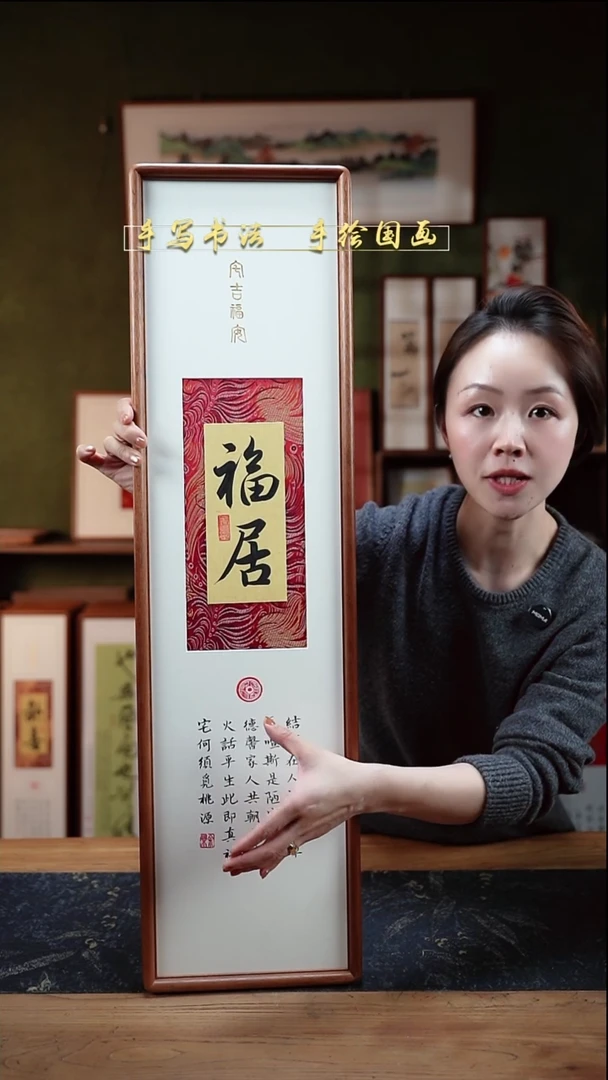 手写书法 手绘国画
宅吉福安
福居
結 在人
喧斯是陋
德馨家人共朝
火話平生此即真
宅何須覓桃源